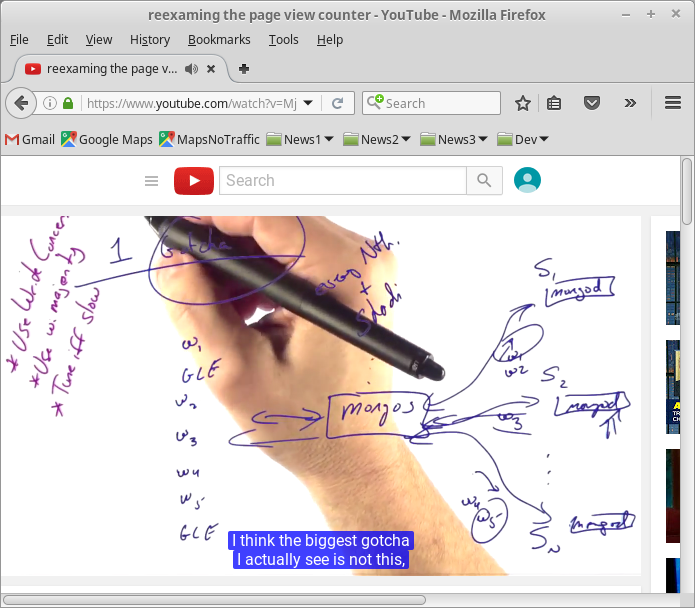 reexaming the page view counter - YouTube - Mozilla Firefox
File Edit View History Bookmarks Tools Help
reexaming the page v...
https://www.youtube.com/watch?v=Mj
Search
Gmail Google Maps MapsNoTraffic News1 News2 News3 Dev
Search
* Use Write Concer
* Use w. majority
* Tune iff slow
1 Gotcha
every Nth.
+
w1
GLE
w2
w3
w4
w5
GLE
mongos
S1
mongod
w1
w2
S2
mongod
w3
w4
w5
SN
mongod
I think the biggest gotcha
I actually see is not this,